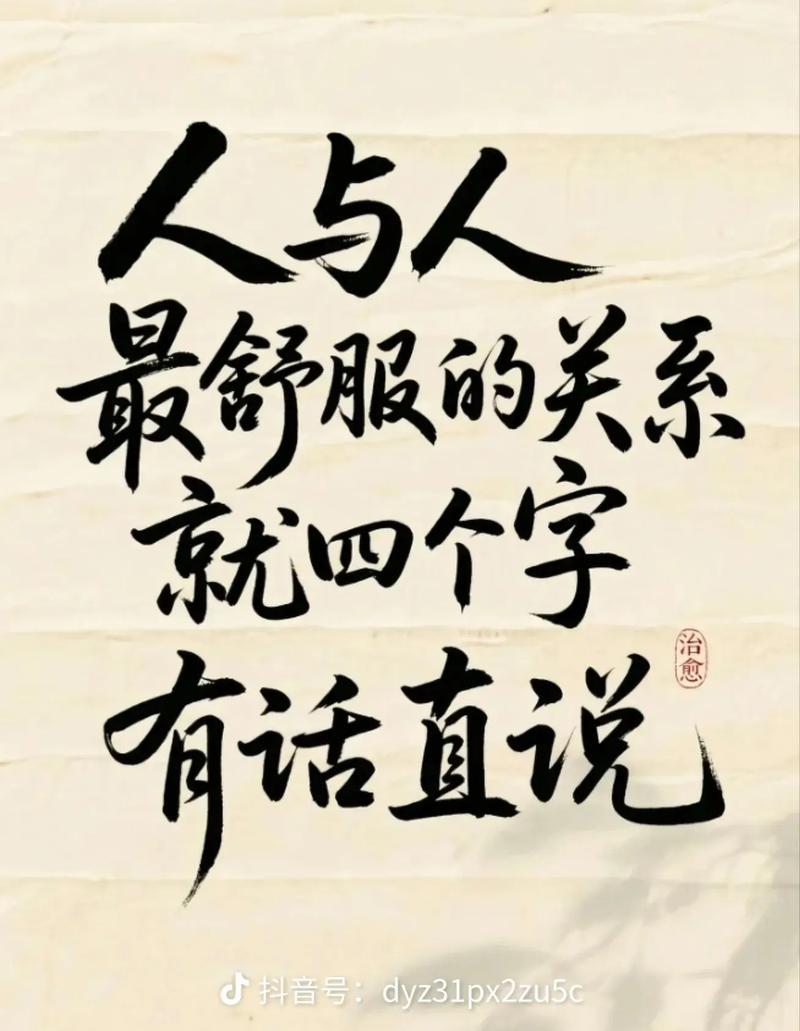 人与人
最舒服的关系
就四个字
有话直说
治愈
抖音号：dyz31px2zu5c